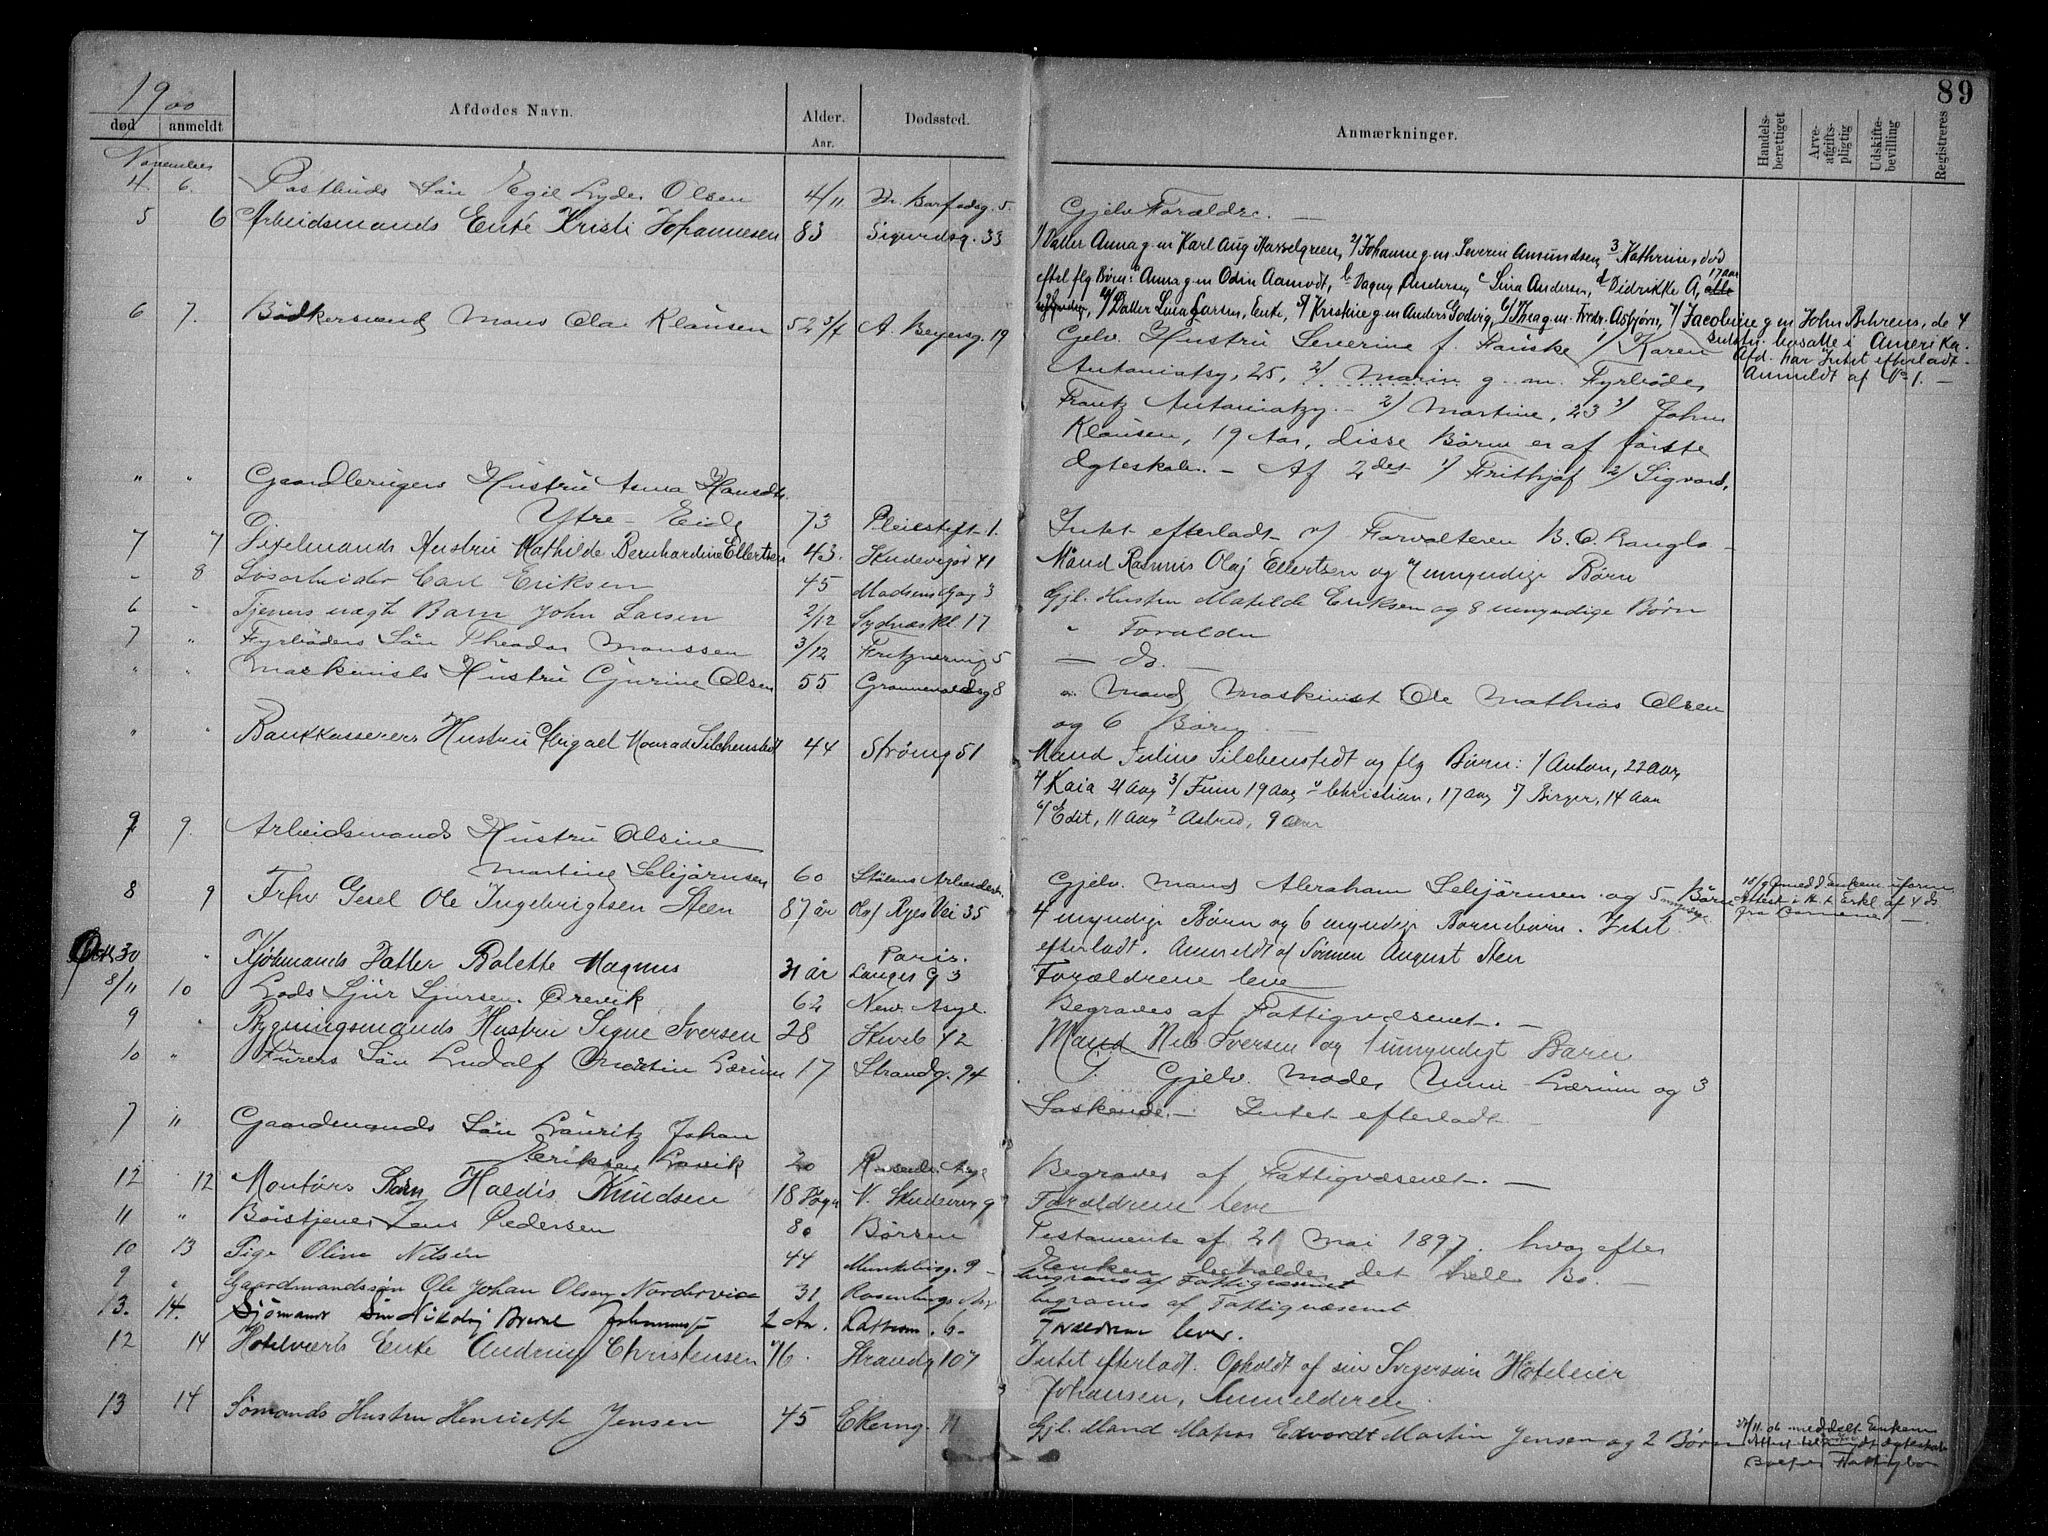 89
1900
død anmeldt Afdødes Navn. Alder. Aar. Dødssted. Anmærkninger. Handelsberettiget Arveafgiftspligtig Udskiftebevilling Registreres
November
4. 6. Postbuds Søn Egil Lyder Olsen 4/11 5. Gjelv Forældre. —
5 6 Arbeidsmands Enke Kristi Johannesen 83 Sigurdsg. 33
1/ Datter Anna g.m Karl Aug Hasselgreen, 2/ Johanne g.m. Severin Amundsen, 3 Kathrine, død
efterl flg Børn: a Anna g.m Odin Aamodt, b Dagny Andersen c Lina Andersen, d Didrikke A, 17 aar alle
4/ Datter Lina Larsen, Enke, 5/ Kristine g.m Anders Godvig, 6/ Thea g.m. Fredr. Asbjørn, 7/ Jacobine g m John Behrens, de 4
sidstn. bosatte i Amerika.
Afd. har Intet efterladt.
Anmeldt af No 1. —
6 7. Bødkersvend Mons Olai Klausen 52 A. Beyersg. 19
Gjelv. Hustru Severine f. Fauske 1/ Karen
Antoniatsy, 25, 2/ Marie g. m. Fyrbøder
Frantz Antoniatzy. — 2/ Martine, 23 3/ John
Klausen, 19 Aar, disse Børn er af første
Ægteskab. — Af 2det 1/ Frithjof 2/ Sigvard,
" " Gaardbrugers Hustru Anna Hansdtr.
Ytre - Eide 73 Pleiestift. 1. Intet efterladt v/ Forvalteren B. O. Langlo
7 7 Dixelmands Hustru Mathilde Bernhardine Ellertsen 43. Skudevigsv 41 Mand Rasmus Olaj Ellertsen og 4 umyndige Børn
" 8 Løsarbeider Carl Eriksen 45 Madsens Gay 3 Gjl. Hustru Matilde Eriksen og 8 umyndige Børn
6 " Tjeners uægt Barn John Larsen 2/12 Sydnæskl 17 " Forældre
7 " Fyrbøders Søn Theodor Monssen 3/12 Fritznersmg 5 — do. —
" " Maskinists Hustru Gjurine Olsen 55 8 " Mand Maskinist Ole Mathias Olsen
og 6 Børn —
" " Bankkasserers Hustru Abigael Konrad Silchenstedt 44 Strømg 51 Mand Julius Silchenstedt og flg Børn: 1/ Anton, 22 aar,
2/ Kaia 21 aar 3/ Finn 19 aar 4 Christian, 17 aar 5/ Birger, 14 aar
6/ Edit, 11 aar 7 Astrid, 9 aar
9 9. Arbeidsmands Hustru Olsine
Martine Sebjørnsen 60 Stølens Arbeiderb. Gjelv. Mand Abraham Sebjørnsen og 5 Børn
8 9 Frhv Gesel Ole Ingebrigtsen Steen 87 år Olaf Ryes Vei 35 4 myndige Børn og 6 myndige Børnebørn. Intet
efterladt. Anmeldt af Sønnen August Sten
Okt 30 " Kjøbmands Datter Bolette Magnus 31 år Paris. Langes G 3 Forældrene leve
8/11 10 Lods Sjur Sjursen Orevik 62 New. Asyl. Begraves af Fattigvæsenet. —
9 " Bygningsmands Hustru Signe Iversen 28 Skiveb 42 Mand Nils Iversen og 1 umyndigt Barn
10 " Førers Søn Ludolf Martin Lærum 17 Strandg. 94 Gjelv. Moder Lærum og 3
Søskende. — Intet efterladt
7 " Gaardmands Søn Lauritz Johan
Eriksen Lavik 20 Asyl Begraves af Fattigvæsenet. —
12 12 Montørs Børn Haldis Knudsen 18 Døgn V. Skudevig 9 Forældrene leve
11 " Børstjener Jens Pedersen 80 Børsen Testamente af 21 Mai 1897. hvorefter
Enken beholder det hele Bo. —
10 13 Pige Olina Nilsen 44 Munkebug. 9 - begraves af Fattigvæsenet
9 " Gaardmandssøn Ole Johan Olsen Nordervik 31 Rosenbergs Asyl begraves af Fattigvæsenet
13. 14. Sjømands Søn Nikolaj Johannessen 2 Aar. 6 - Forældrene lever.
12 14 Hotelværts Enke Andrine Christensen 76. Strandg 107 Intet efterladt. Opholdt af sin Svigersøn Hoteleier
Johansen, Anmelderen
13 14 Sømands Hustru Henriette Jensen 45 Ekerng. 11 Gjl. Mand Matros Edvardt Martin Jensen og 2 Børn